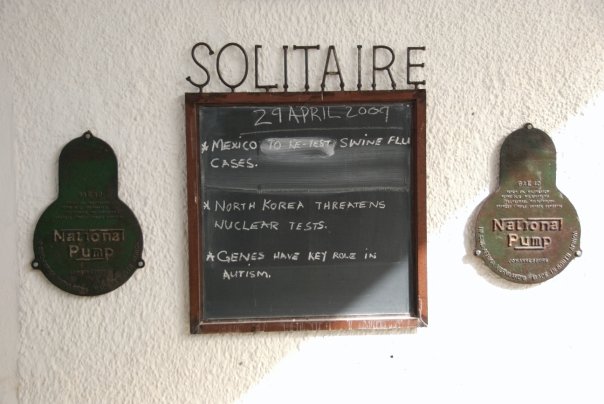 SOLITAIRE
29 APRIL 2009
* MEXICO TO RE-TEST SWINE FLU
CASES.
* NORTH KOREA THREATENS
NUCLEAR TESTS.
* GENES HAVE KEY ROLE IN
AUTISM.
National
Pump
JOHANNESBURG
National
Pump
JOHANNESBURG